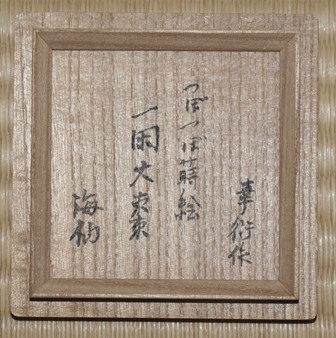 作
つぼつぼ蒔絵
一閑大棗
海